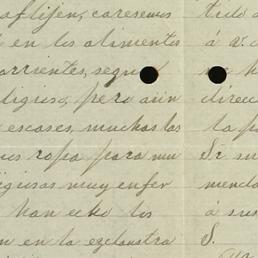 aflijen, caresemos
en los alimentos
arrientes, segun
ligiuso, pero aún
escases, muchas las
ropa para mu
igiosas muy enfer
han ecko los
en la exclaustra
tido a
á v.
h
direcc
la p
Si su
menda
á sus
S.